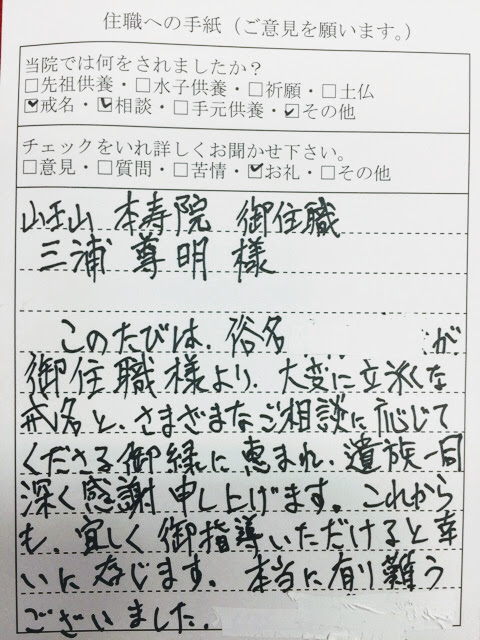 住職への手紙（ご意見を願います。）
当院では何をされましたか？
□先祖供養・□水子供養・□祈願・□土仏
☑戒名・☑相談・□手元供養・☑その他
チェックをいれ詳しくお聞かせ下さい。
□意見・□質問・□苦情・☑お礼・□その他
山王山 本寿院 御住職
三浦 尊明 様
このたびは、俗名 が
御住職様より、大変に立派な
戒名と、さまざまなご相談に応じて
くださる御縁に恵まれ、遺族一同
深く感謝申し上げます。これから
も、宜しく御指導いただけると幸
いに存じます。本当に有り難う
ございました。